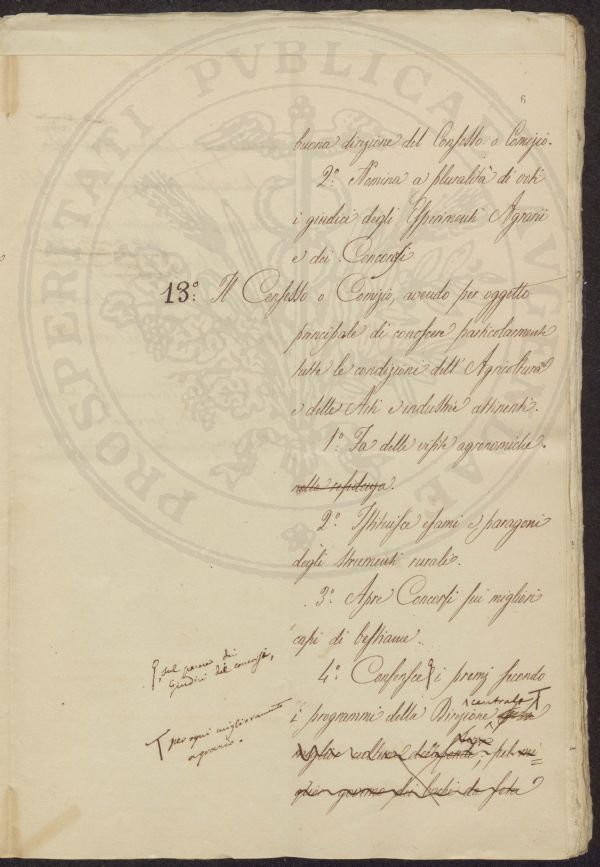 6
buona direzione del Consesso o Comizio.
2.° Nomina a pluralità di voti
i giudici degli Esperimenti Agrarii
e dei Concorsi
13.° Il Consesso o Comizio, avendo per oggetto
principale di conoscere particolarmente
tutte le condizioni dell'Agricoltura
e delle Arti e industrie attinenti.
1.° Fa delle visite agronomiche.
nella residenza.
2.° Istituisce esami e paragoni
degli strumenti rurali.
3.° Apre Concorsi sui migliori
capi di bestiame.
sul parere dei
Giudici del concorso,
4.° Conferisce i premj secondo
centrale
i programmi della Direzione
per ogni miglioramento
agrario.
PROSPERITATI PUBLICAE AUGENDAE